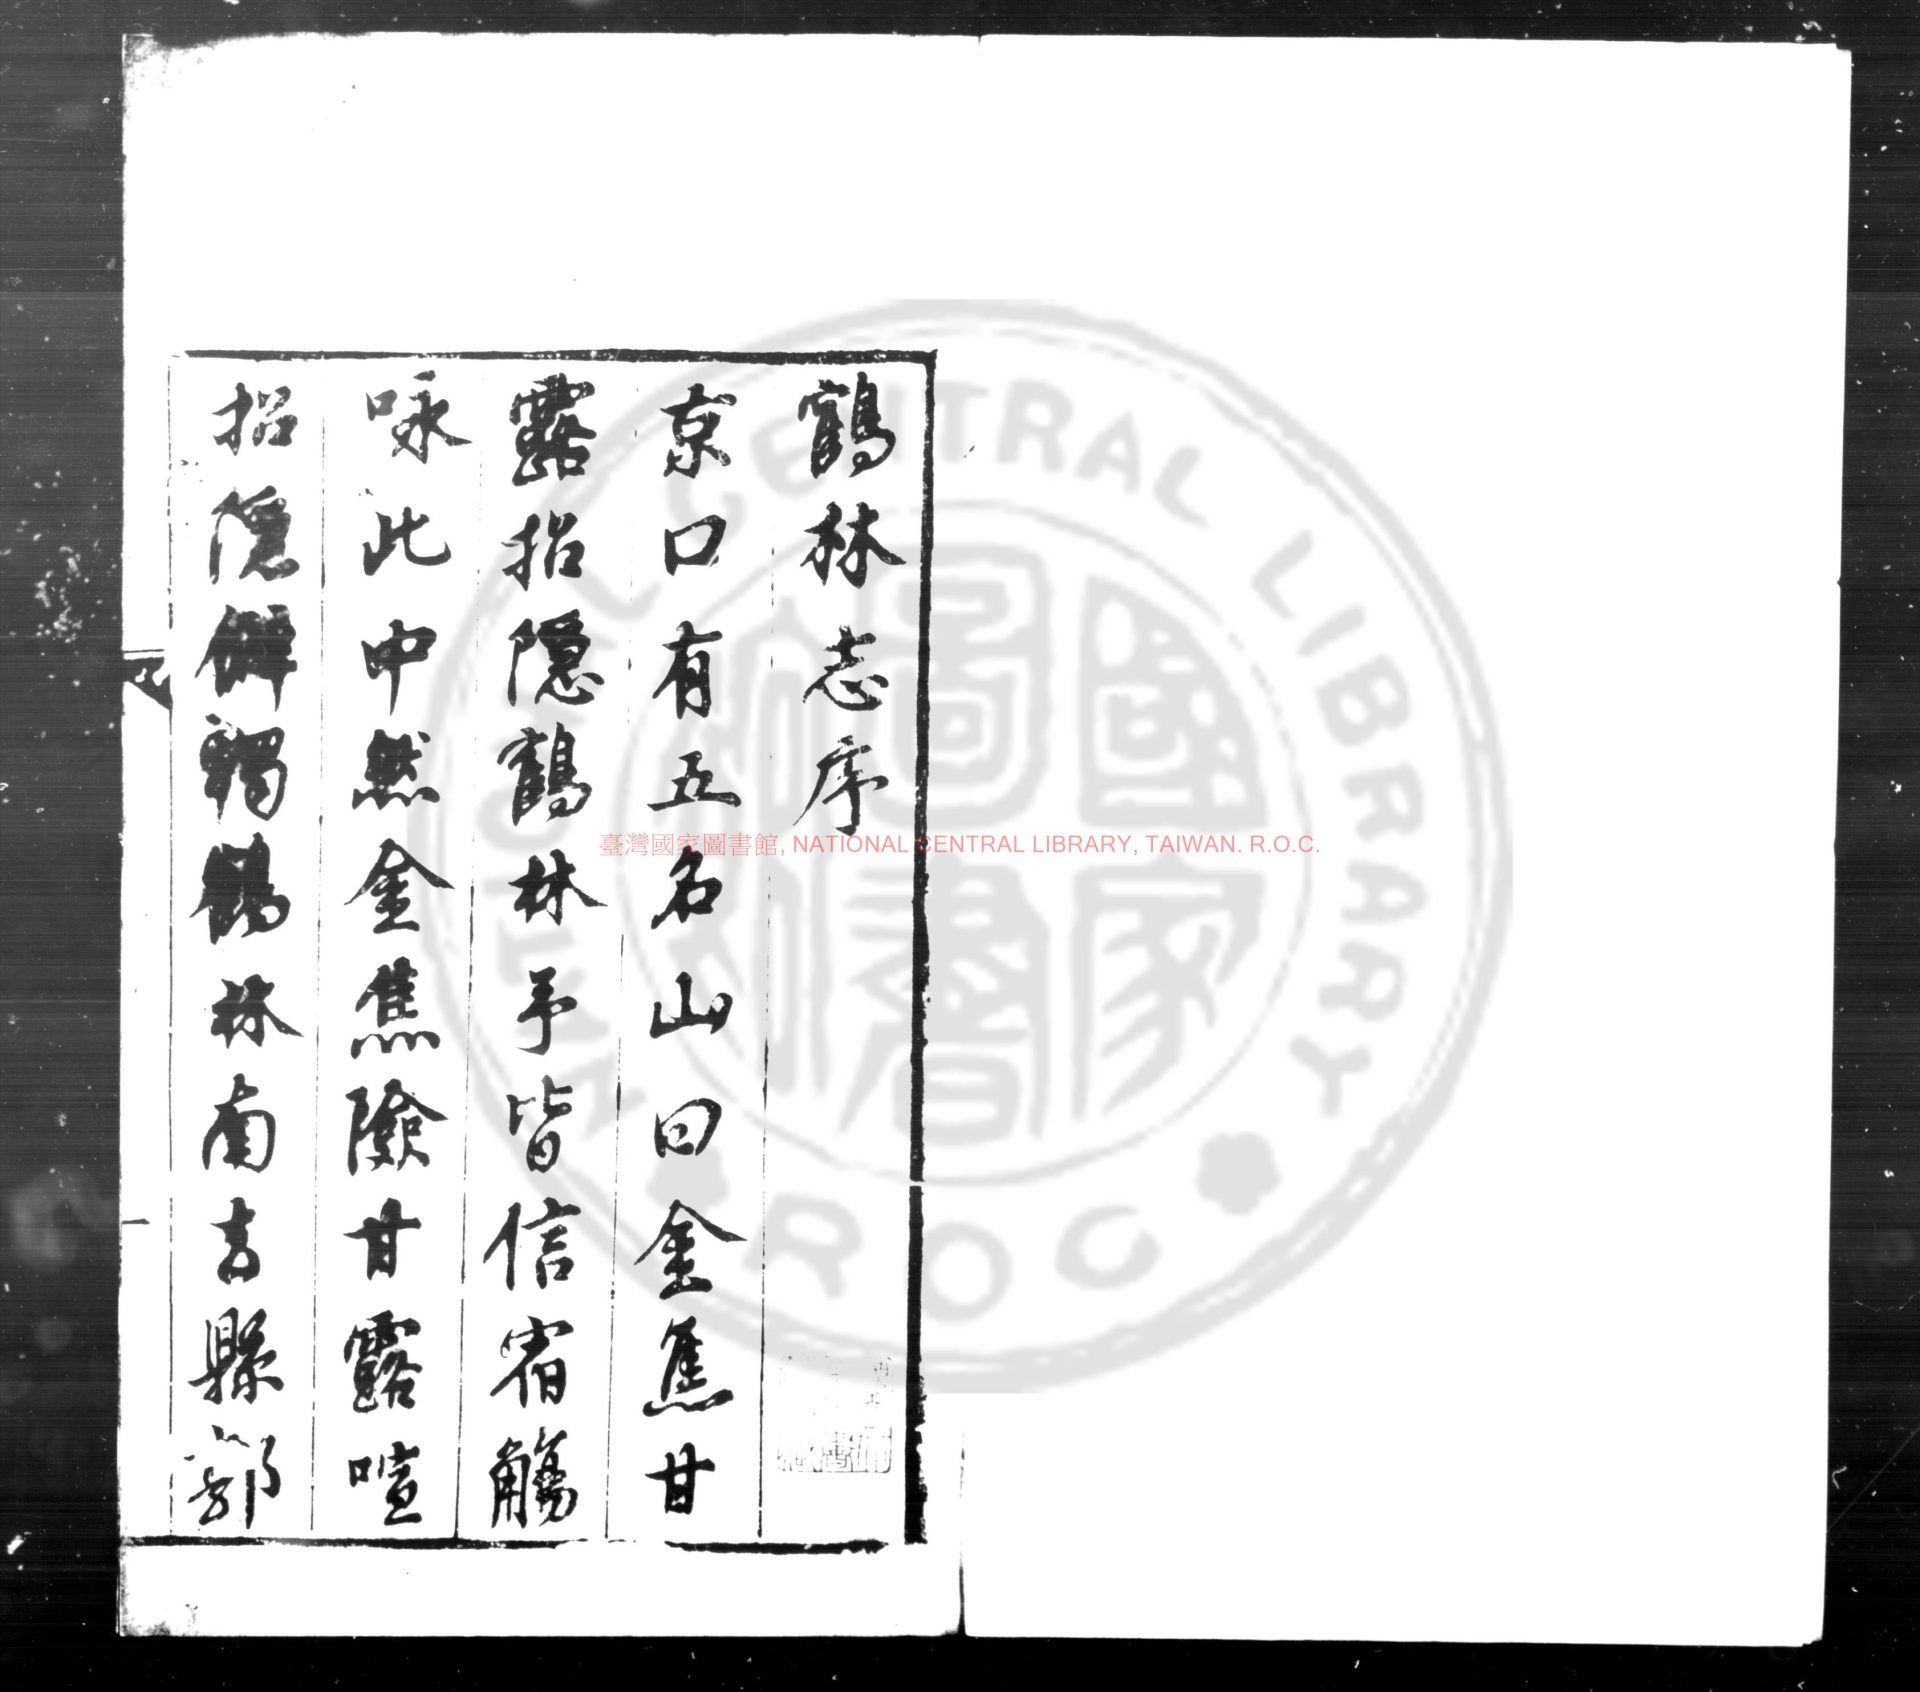 鶴林志序
京口有五名山曰金焦甘
露招隱鶴林予皆信宿觴
咏此中然金焦險甘露喧
招隱僻獨鶴林南去縣鄣
臺灣國家圖書館, NATIONAL CENTRAL LIBRARY, TAIWAN. R.O.C.
NATIONAL CENTRAL LIBRARY
R O C
國家
圖書